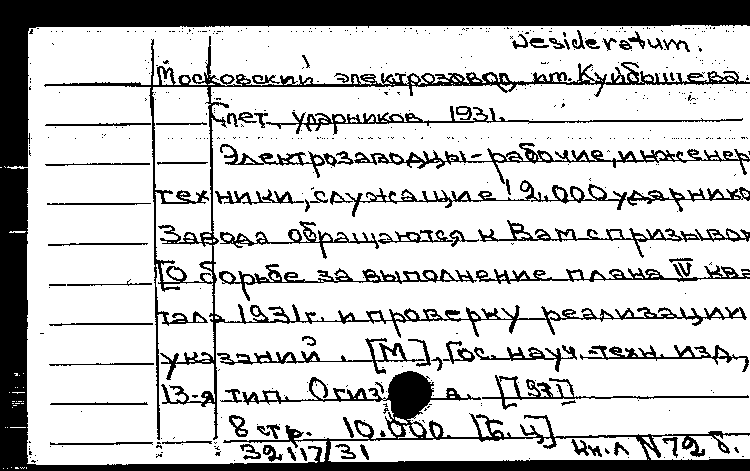 Desideratum.
Московский электрозавод им. Куйбышева.
Слет ударников, 1931.
Электрозаводцы-рабочие, инженер
техники, служащие! 2.000 ударнико
Завода обращаются к Вам с призывом
[О борьбе за выполнение плана IV ква
тала 1931г. и проверку реализации
указаний. [М], Гос. науч.-техн. изд.,
13-я тип. Огиз а. [1931]
8 стр. 10.000. [Б.ц]
32117/31 кн.л N72 б.